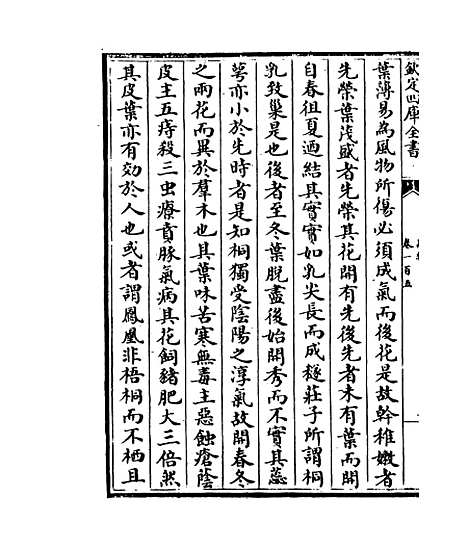 欽定四庫全書
卷一百五
葉薄易為風物所傷必須成氣而後花是故幹稚嫩者
先榮葉茂盛者先榮其花開有先後先者未有葉而開
自春徂夏迺結其實實如乳尖長而成穟莊子所謂桐
乳致巢是也後者至冬葉脫盡後始開秀而不實其蕊
萼亦小於先時者是知桐獨受陰陽之淳氣故開春冬
之兩花而異於羣木也其葉味苦寒無毒主惡蝕瘡蔭
皮主五痔殺三虫療賁豚氣病其花飼豬肥大三倍然
其皮葉亦有効於人也或者謂鳳凰非梧桐而不栖且